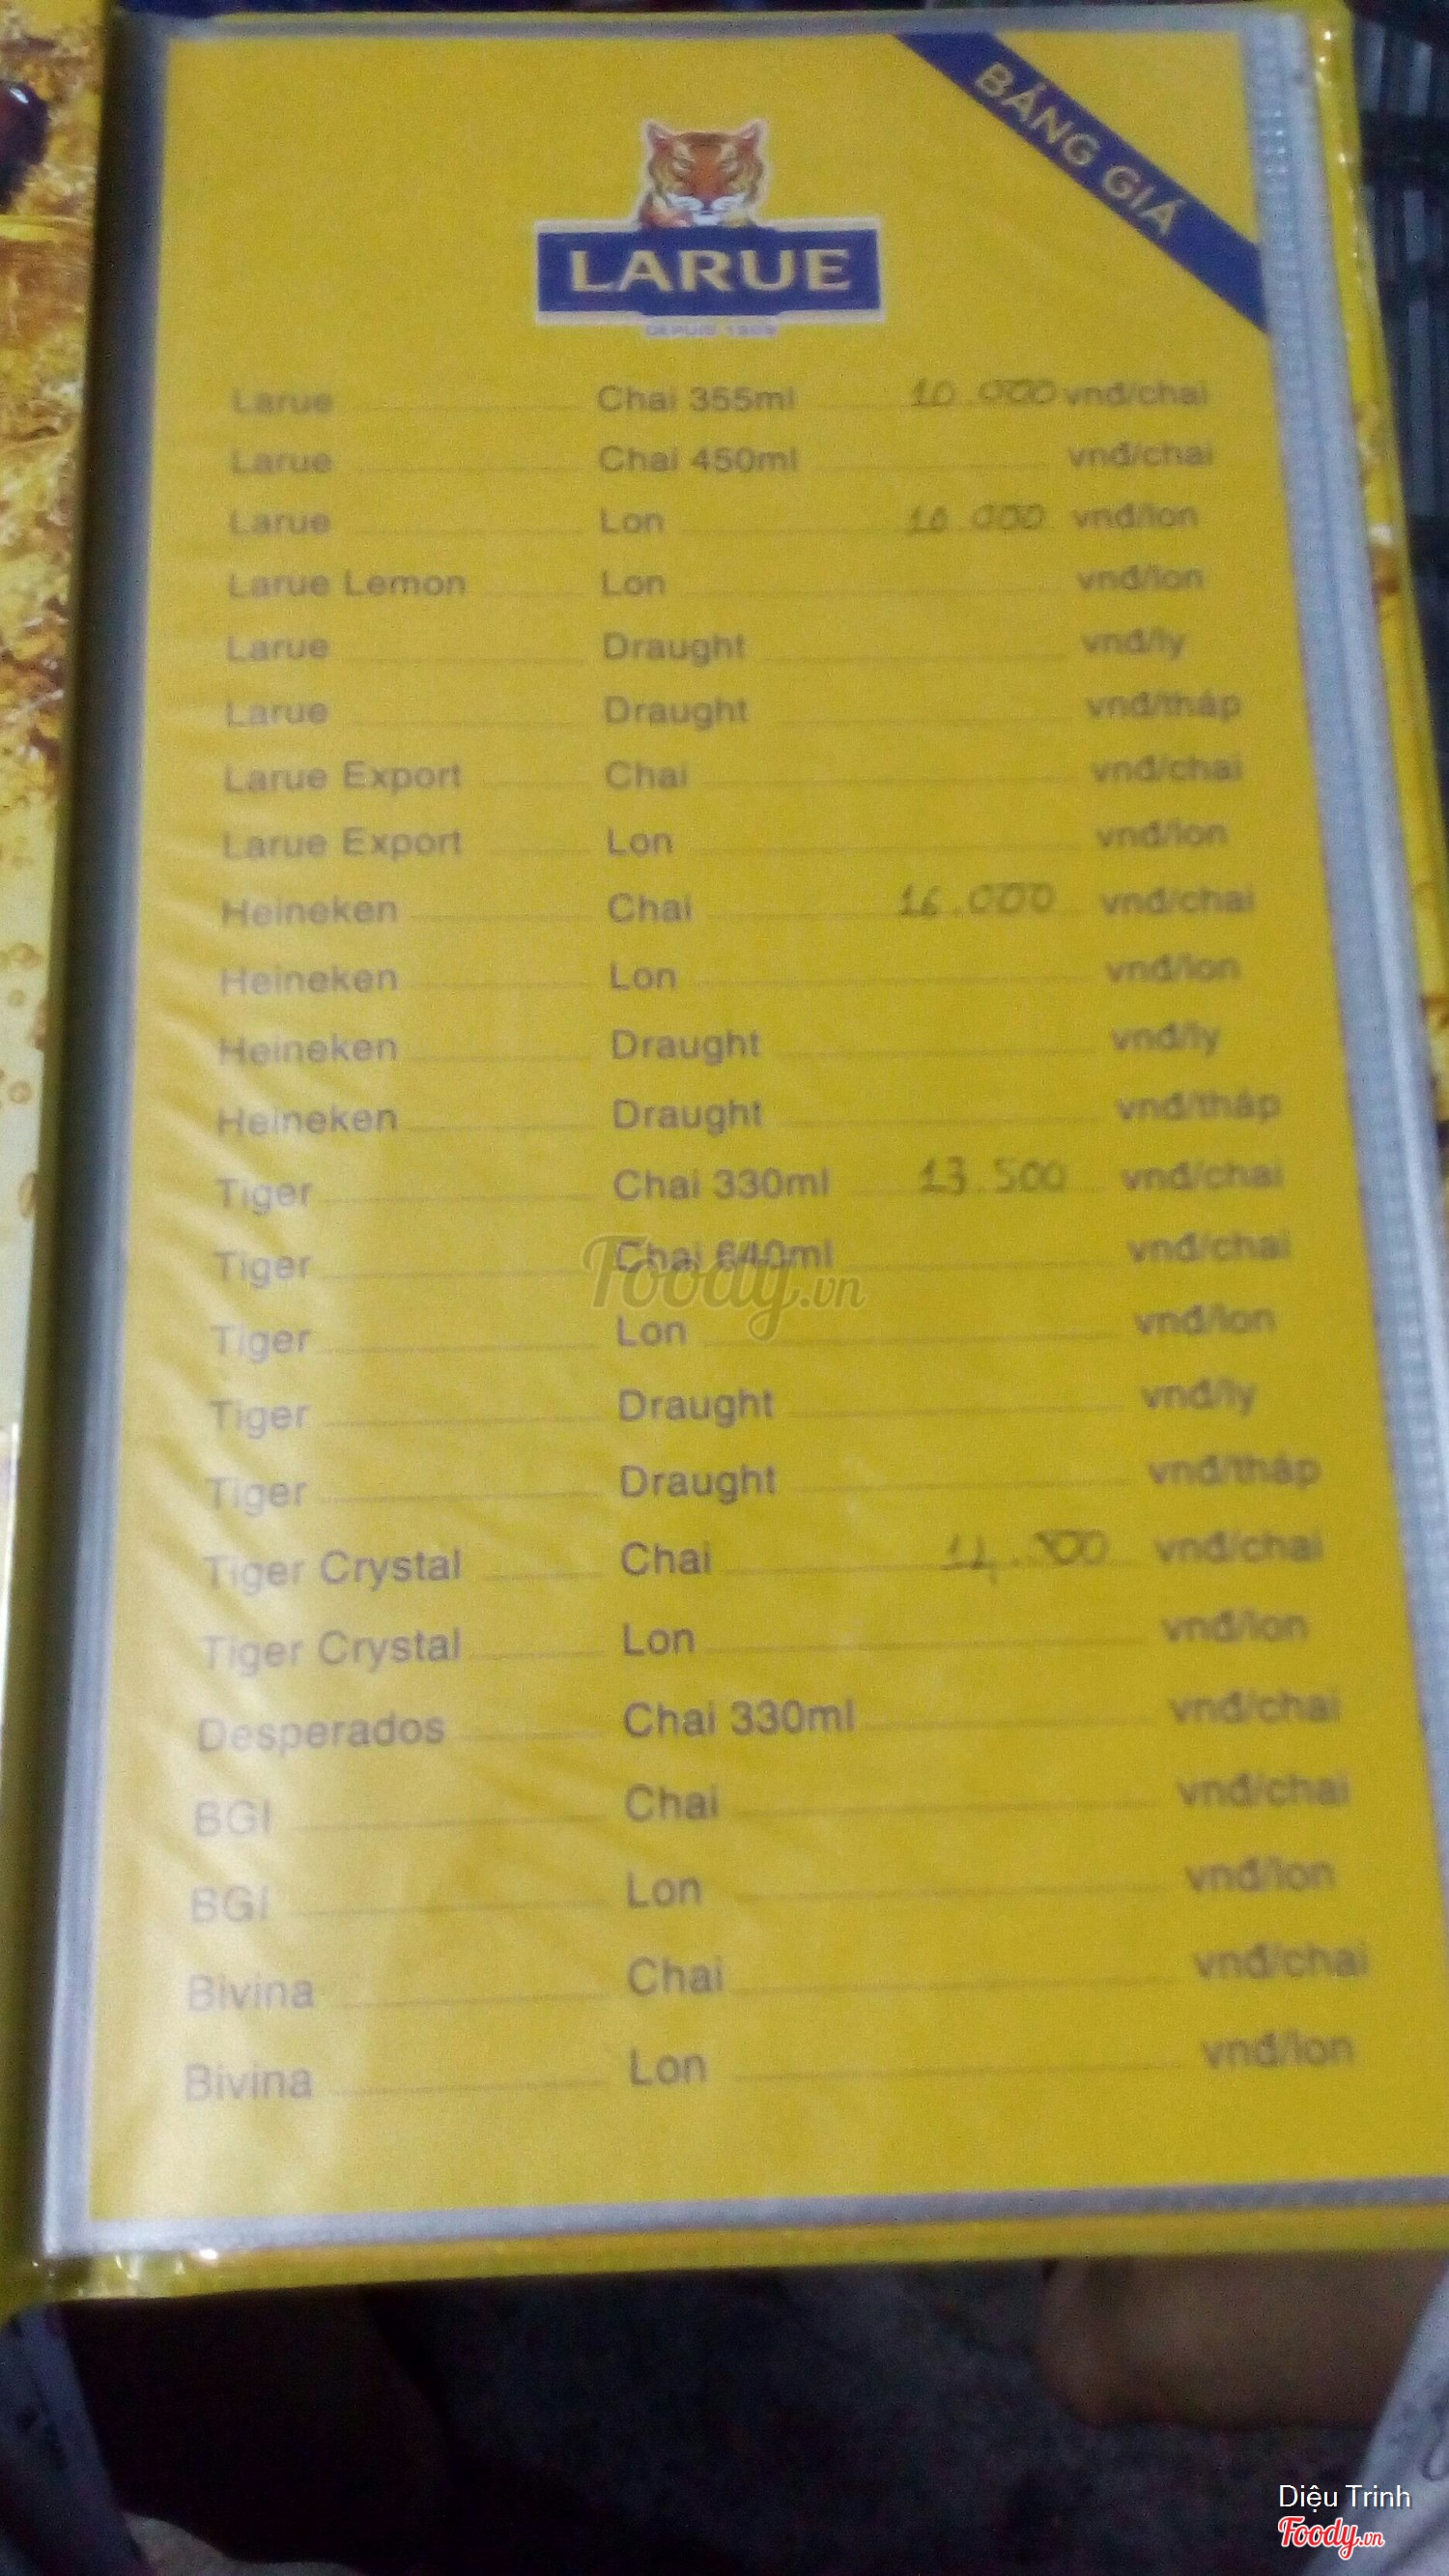 BẢNG GIÁ
LARUE
DEPUIS 1909
Larue Chai 355ml 10.000 vnđ/chai
Larue Chai 450ml vnđ/chai
Larue Lon 10.000 vnđ/lon
Larue Lemon Lon vnđ/lon
Larue Draught vnđ/ly
Larue Draught vnđ/tháp
Larue Export Chai vnđ/chai
Larue Export Lon vnđ/lon
Heineken Chai 16.000 vnđ/chai
Heineken Lon vnđ/lon
Heineken Draught vnđ/ly
Heineken Draught vnđ/tháp
Tiger Chai 330ml 13.500 vnđ/chai
Tiger Chai 640ml vnđ/chai
Foody.vn
Tiger Lon vnđ/lon
Tiger Draught vnđ/ly
Tiger Draught vnđ/tháp
Tiger Crystal Chai vnđ/chai
Tiger Crystal Lon vnđ/lon
Desperados Chai 330ml vnđ/chai
BGI Chai vnđ/chai
BGI Lon vnđ/lon
Bivina Chai vnđ/chai
Bivina Lon vnđ/lon
Diệu Trinh
Foody.vn